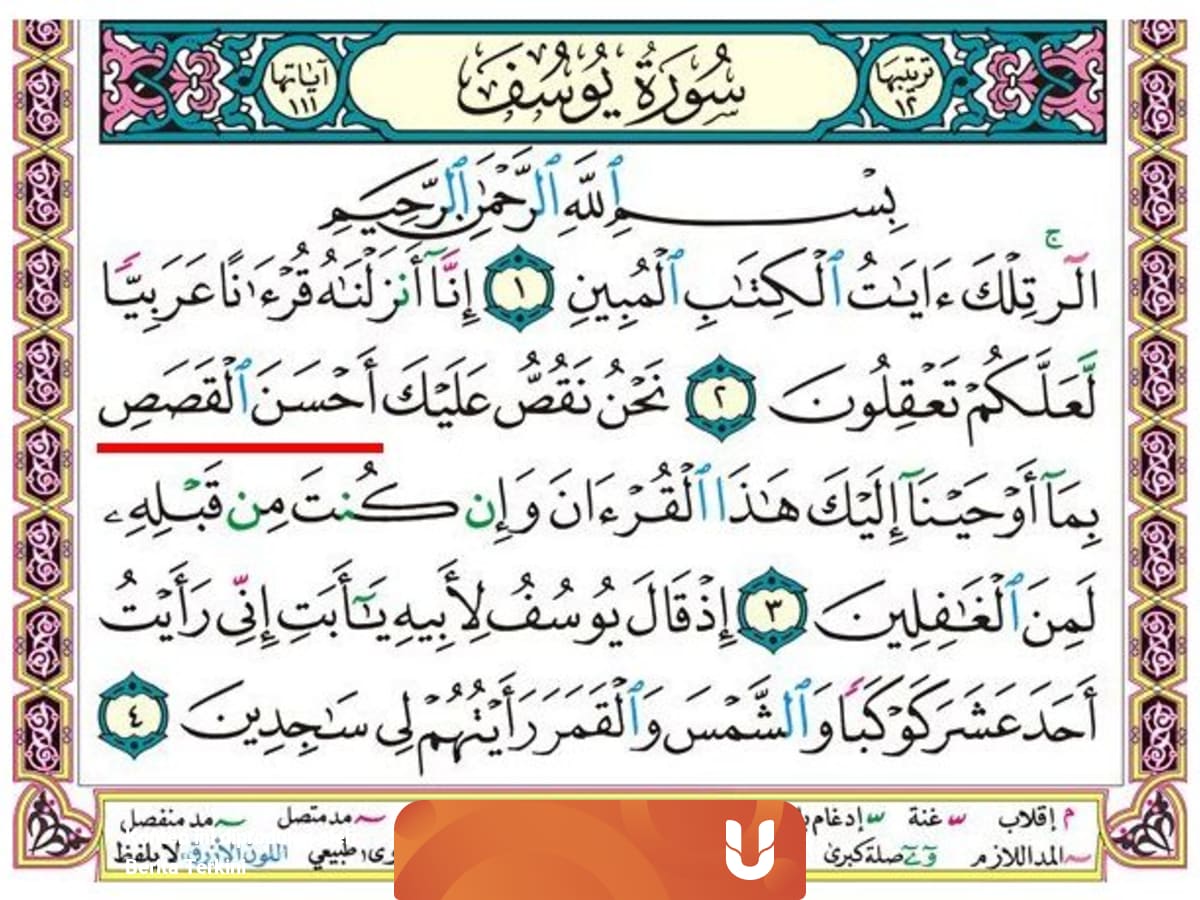 ترتيبها ١٢
سُورَةُ يُوسُفَ
آياتها ١١١
بِسْمِ ٱللَّهِ ٱلرَّحْمَٰنِ ٱلرَّحِيمِ
الٓر ۚ تِلْكَ ءَايَٰتُ ٱلْكِتَٰبِ ٱلْمُبِينِ ١ إِنَّآ أَنزَلْنَٰهُ قُرْءَٰنًا عَرَبِيًّا
لَّعَلَّكُمْ تَعْقِلُونَ ٢ نَحْنُ نَقُصُّ عَلَيْكَ أَحْسَنَ ٱلْقَصَصِ
بِمَآ أَوْحَيْنَآ إِلَيْكَ هَٰذَا ٱلْقُرْءَانَ وَإِن كُنتَ مِن قَبْلِهِۦ
لَمِنَ ٱلْغَٰفِلِينَ ٣ إِذْ قَالَ يُوسُفُ لِأَبِيهِ يَٰٓأَبَتِ إِنِّى رَأَيْتُ
أَحَدَ عَشَرَ كَوْكَبًا وَٱلشَّمْسَ وَٱلْقَمَرَ رَأَيْتُهُمْ لِى سَٰجِدِينَ ٤
م إقلاب غنة إدغام مد متصل مد منفصل
المد اللازم صلة كبرى طبيعي اللون الأزرق لا يلفظ
Berita Terkini